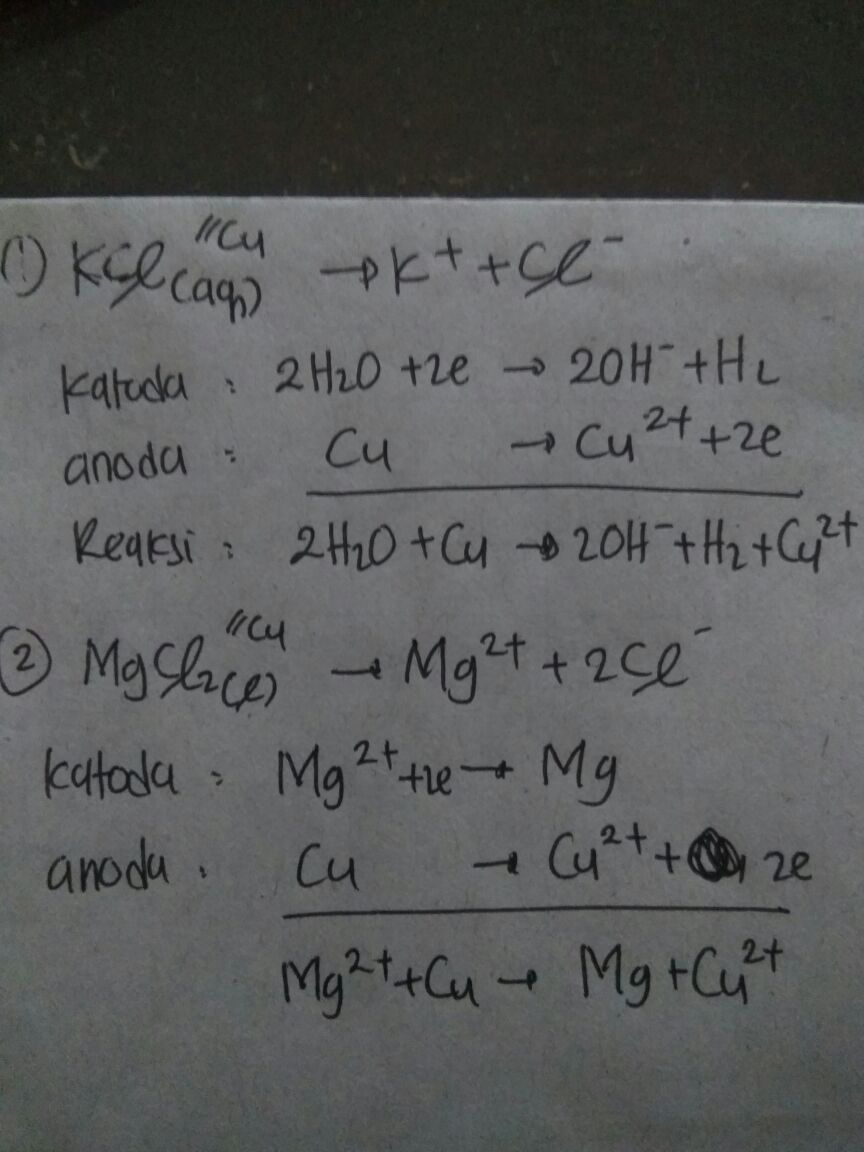 (1) KCl(aq) //Cu → K⁺ + Cl⁻
Katoda : 2H₂O + 2e → 2OH⁻ + H₂
anoda : Cu → Cu²⁺ + 2e
Reaksi : 2H₂O + Cu → 2OH⁻ + H₂ + Cu²⁺
(2) MgCl₂(l) //Cu → Mg²⁺ + 2Cl⁻
Katoda : Mg²⁺ + 2e → Mg
anoda : Cu → Cu²⁺ + 2e
Mg²⁺ + Cu → Mg + Cu²⁺